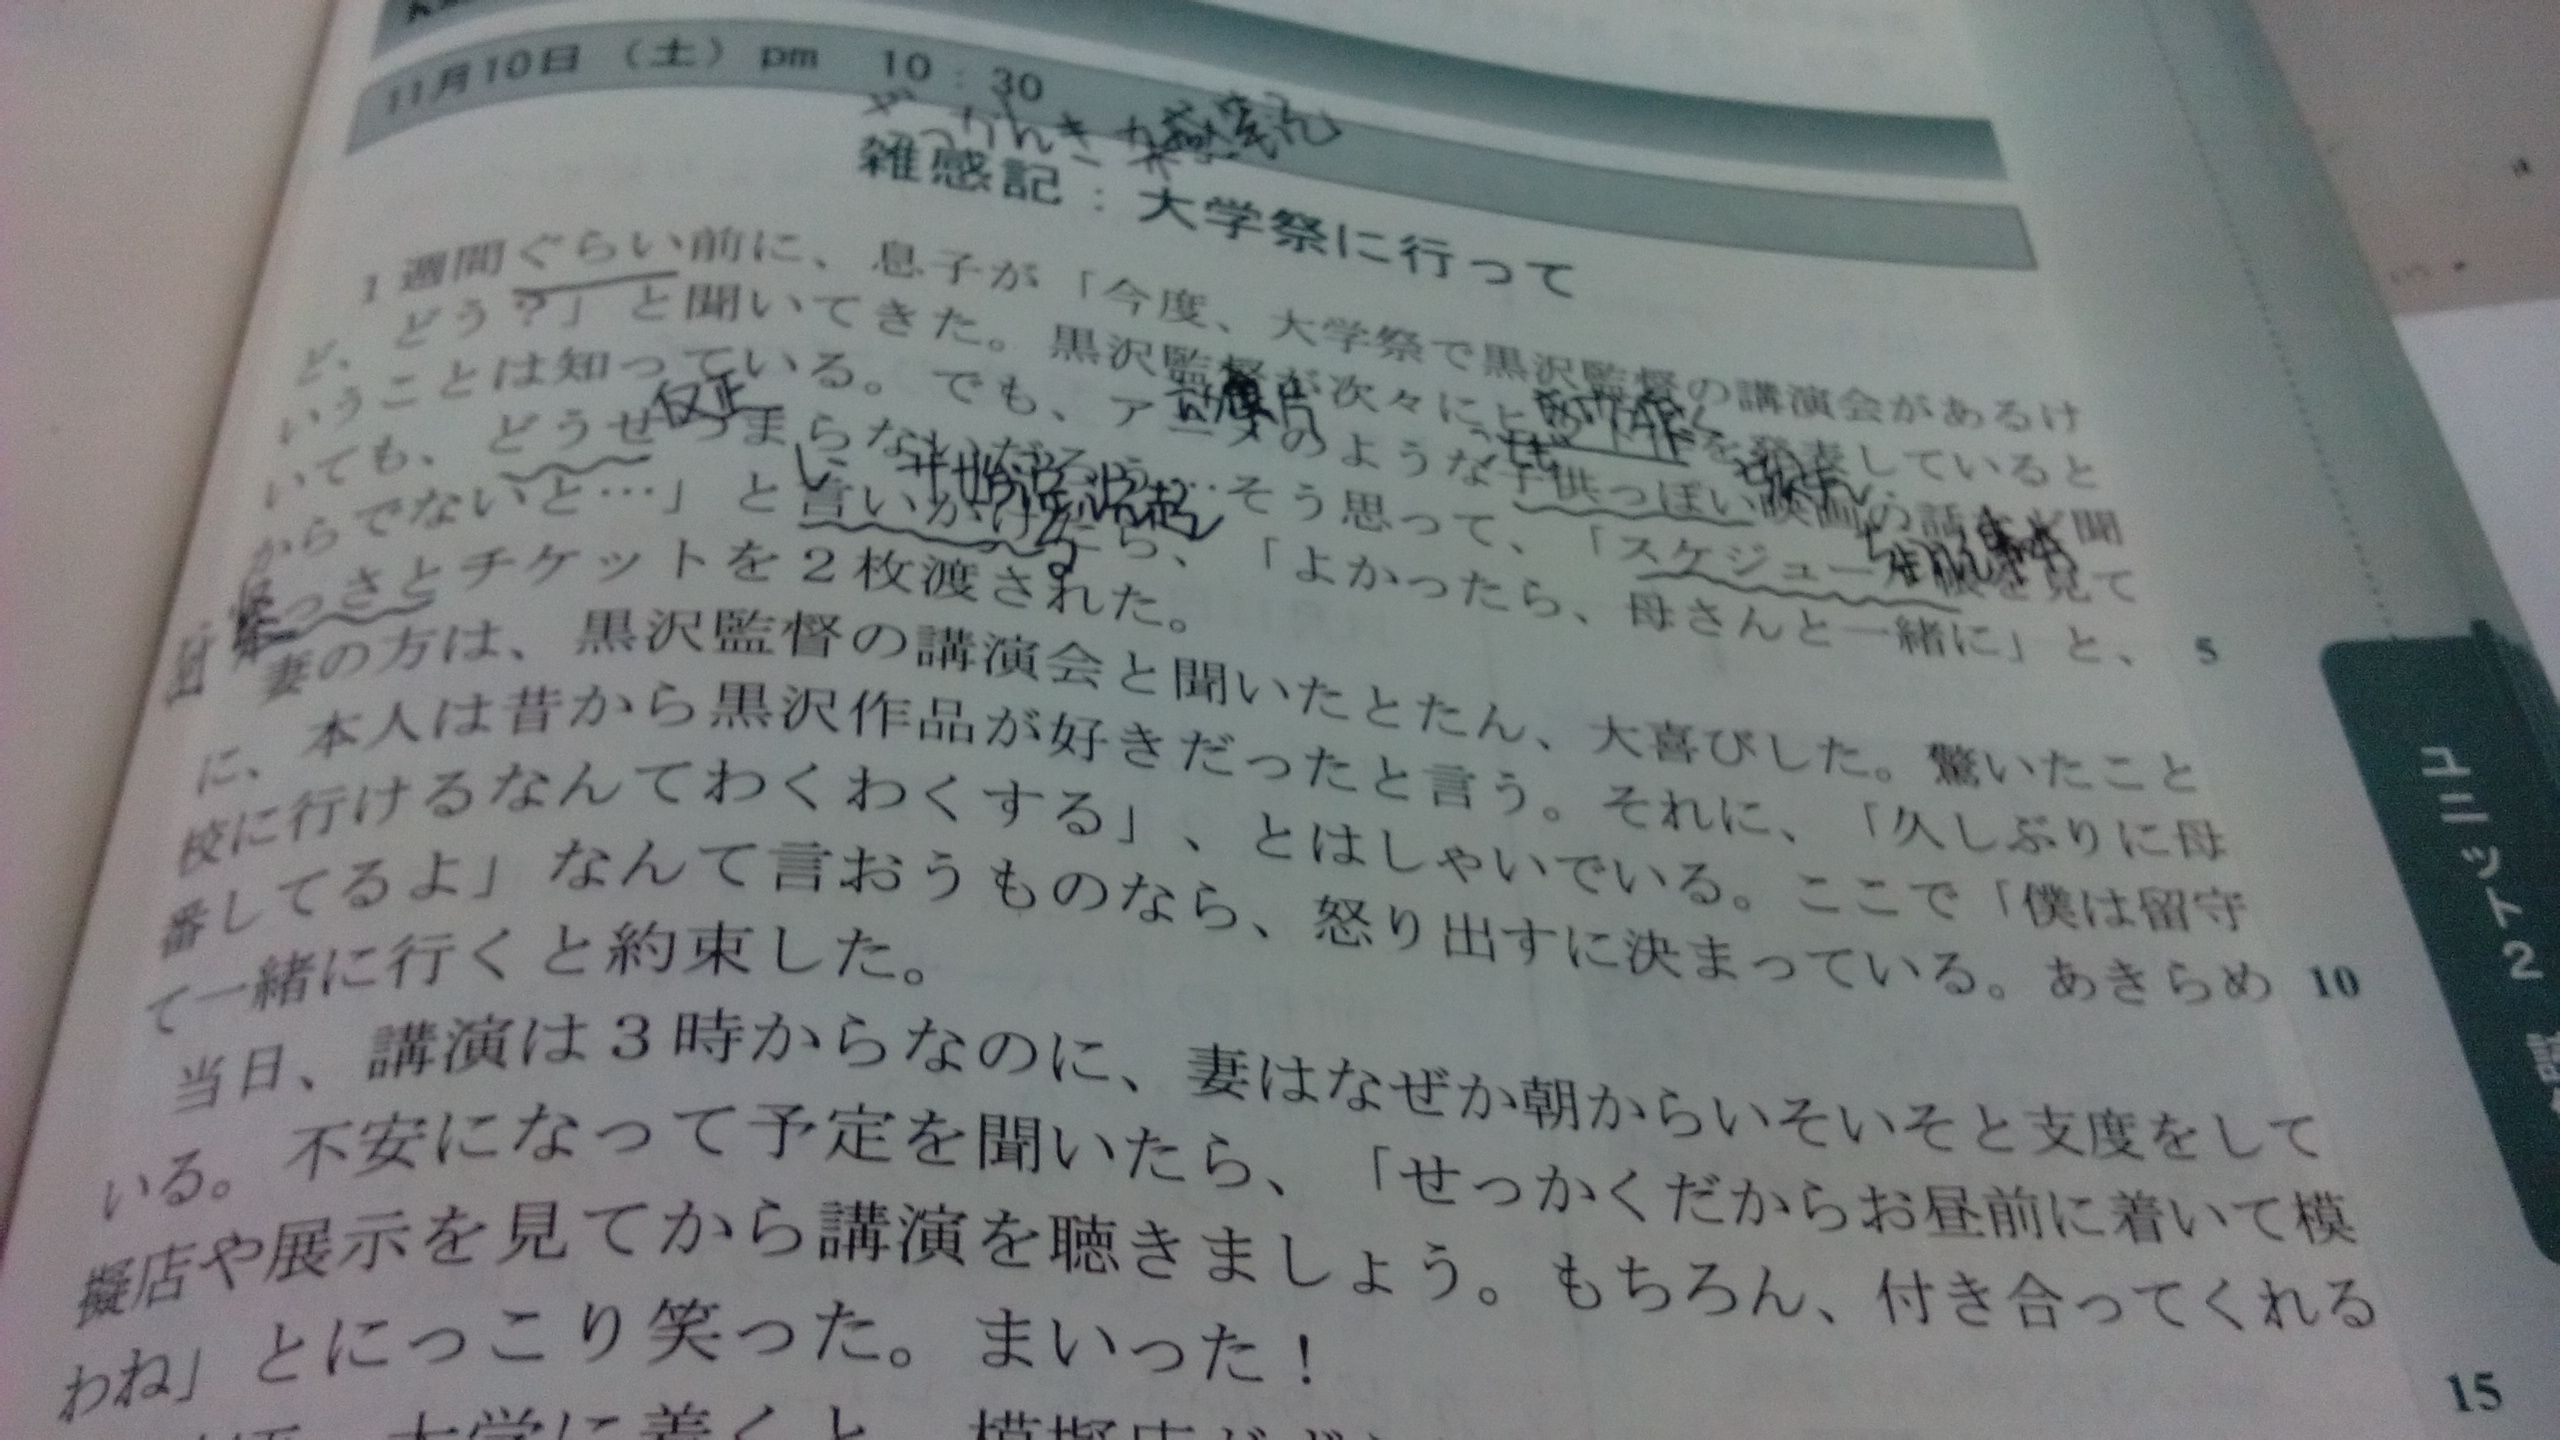 11月10日（土）pm 10：30
ざっかんき
雑感記：大学祭に行って
1週間ぐらい前に、息子が「今度、大学祭で黒沢監督の講演会があるけ
ど、どう？」と聞いてきた。黒沢監督が次々にヒットを発表していると
いうことは知っている。でも、アニメのような子供っぽい映画の話など聞
仅正
いても、どうせつまらないだろう…。そう思って、「スケジュールを見て
からでないと…」と言いかけたら、「よかったら、母さんと一緒に」と、
さっさとチケットを2枚渡された。
5
妻の方は、黒沢監督の講演会と聞いたとたん、大喜びした。驚いたこと
に、本人は昔から黒沢作品が好きだったと言う。それに、「久しぶりに母
校に行けるなんてわくわくする」、とはしゃいでいる。ここで「僕は留守
番してるよ」なんて言おうものなら、怒り出すに決まっている。あきらめ
10
て一緒に行くと約束した。
当日、講演は3時からなのに、妻はなぜか朝からいそいそと支度をして
いる。不安になって予定を聞いたら、「せっかくだからお昼前に着いて模
擬店や展示を見てから講演を聴きましょう。もちろん、付き合ってくれる
わね」とにっこり笑った。まいった！
15
大学に着くと、模擬店が
ユニット2